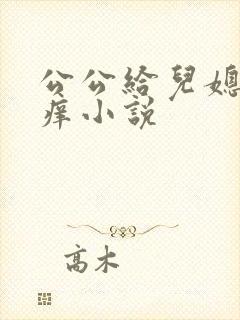 公公給兒媳
痒小說
高木